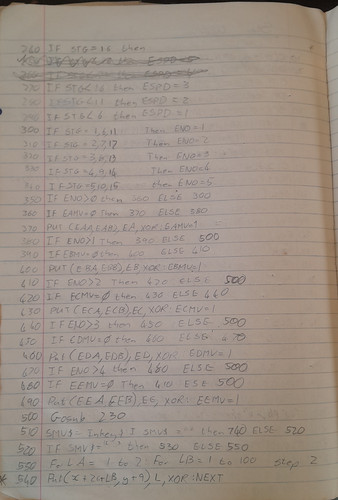 240 IF STG=16 then
270 IF STG<16 then ESPD=3
ESPD=2
IF STG<6 then ESPD=1
300 IF STG=1,6,11 Then ENO=1
310 IF STG=2,7,12 Then ENO=2
320 IF STG=3,8,13 Then ENO=3
330 IF STG=4,9,14 Then ENO=4
340 IF STG=5,10,15 then ENO=5
350 IF ENO>0 then 360 ELSE 500
360 IF EAMV=0 then 370 ELSE 380
370 PUT (EAA,EAB),EA,XOR:EAMV=1
380 IF ENO>1 then 390 ELSE 500
390 IF EBMV=0 then 400 ELSE 410
400 PUT (EBA,EBB),EB,XOR:EBMV=1
410 IF ENO>2 then 420 ELSE 500
420 IF ECMV=0 then 430 ELSE 440
430 PUT (ECA,ECB),EC,XOR:ECMV=1
440 IF ENO>3 then 450 ELSE 500
450 IF EDMV=0 then 460 ELSE 470
460 PUT (EDA,EDB),ED,XOR:EDMV=1
470 IF ENO>4 then 480 ELSE 500
480 IF EEMV=0 Then 490 ELSE 500
490 PUT (EEA,EEB),EE,XOR:EEMV=1
500 Gosub 230
510 SMV$= IF SMV$ then 260 ELSE 520
520 IF SMV$= then 530 ELSE 550
530 For LA = 1 to 2: For LB=1 to 100 Step 2
* 540 Put(x+20+LB,y+9),L,XOR:NEXT